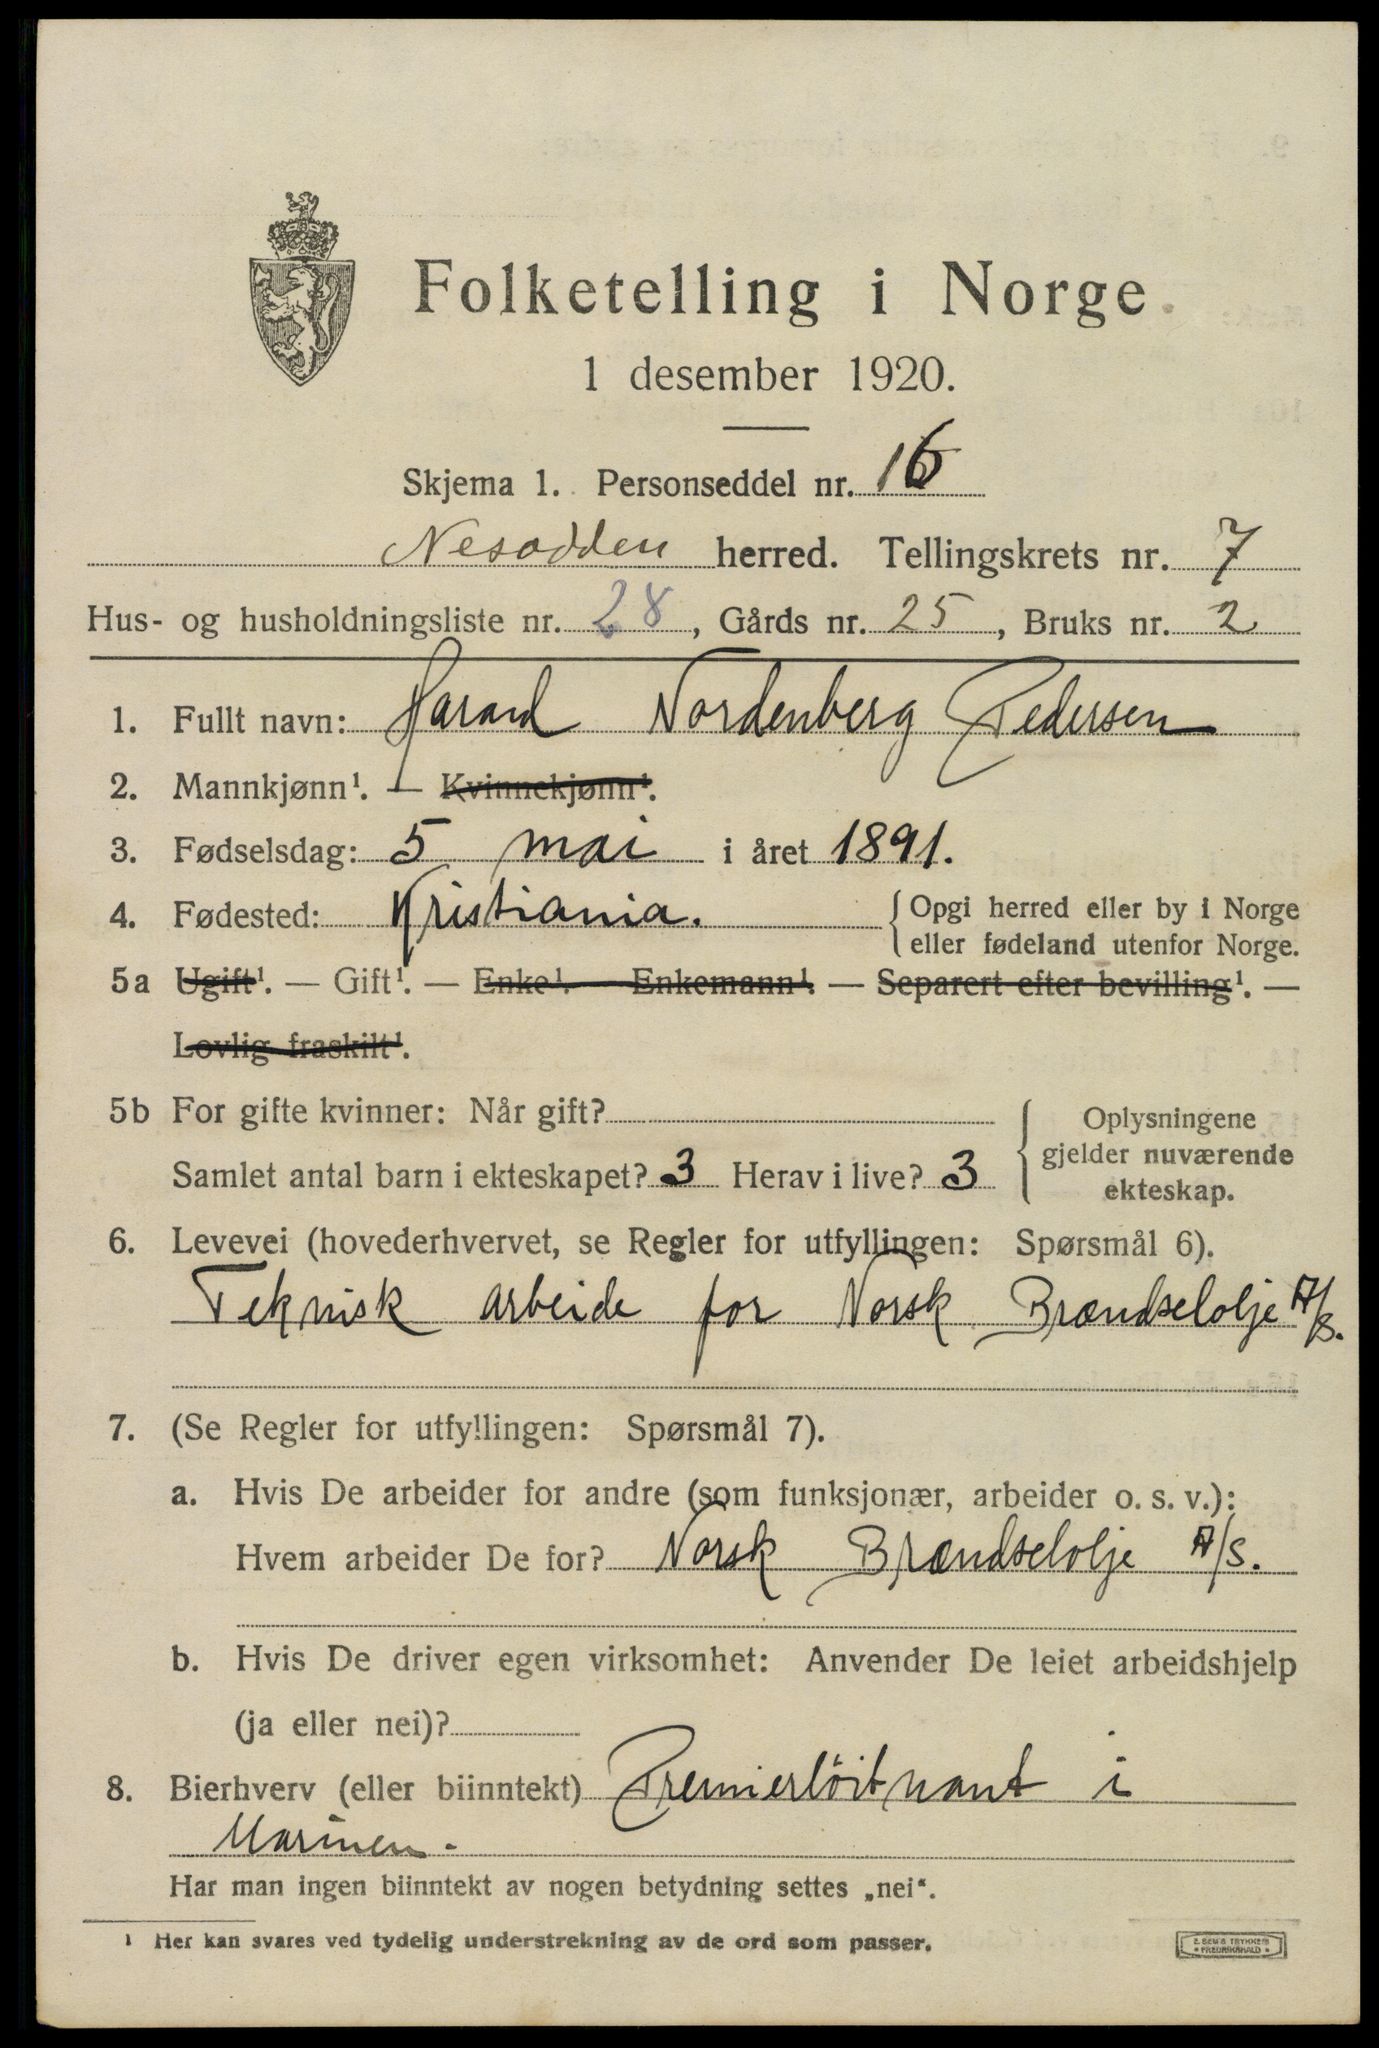 Folketelling i Norge
1 desember 1920.
Skjema 1. Personseddel nr. 16
Nesodden herred. Tellingskrets nr. 7
Hus- og husholdningsliste nr. 28, Gårds nr. 25, Bruks nr. 2
1. Fullt navn: Harald Nordenberg Pedersen
2. Mannkjønn¹. — Kvinnekjønn¹.
3. Fødselsdag: 5 mai i året 1891.
4. Fødested: Kristiania. { Opgi herred eller by i Norge
eller fødeland utenfor Norge.
5a Ugift¹. — Gift¹. — Enke¹. — Enkemann¹. — Separert efter bevilling¹. —
Lovlig fraskilt¹.
5b For gifte kvinner: Når gift?
Samlet antal barn i ekteskapet? 3 Herav i live? 3
Oplysningene
gjelder nuværende
ekteskap.
6. Levevei (hovederhvervet, se Regler for utfyllingen: Spørsmål 6).
Teknisk arbeide for Norsk Brændselolje A/S.
7. (Se Regler for utfyllingen: Spørsmål 7).
a. Hvis De arbeider for andre (som funksjonær, arbeider o. s. v.):
Hvem arbeider De for? Norsk Brændselolje A/S.
b. Hvis De driver egen virksomhet: Anvender De leiet arbeidshjelp
(ja eller nei)?
8. Bierhverv (eller biinntekt) Premierlöitnant i
Marinen.
Har man ingen biinntekt av nogen betydning settes „nei".
¹ Her kan svares ved tydelig understrekning av de ord som passer.
E. SEM'S TRYKKERI
FREDRIKSHALD